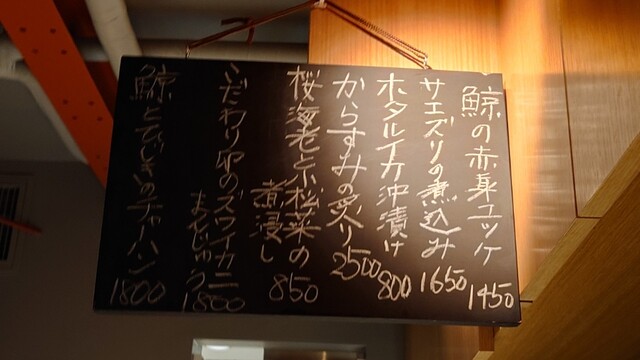 鯨の赤身ユッケ 1450
サエズリの煮込み 1650
ホタルイカ沖漬け 800
からすみの炙り 2500
桜海老と小松菜の
煮浸し 850
こだわり卵のズワイカニ
おむじゅう 1800
鯨とひじきのチャーハン 1800